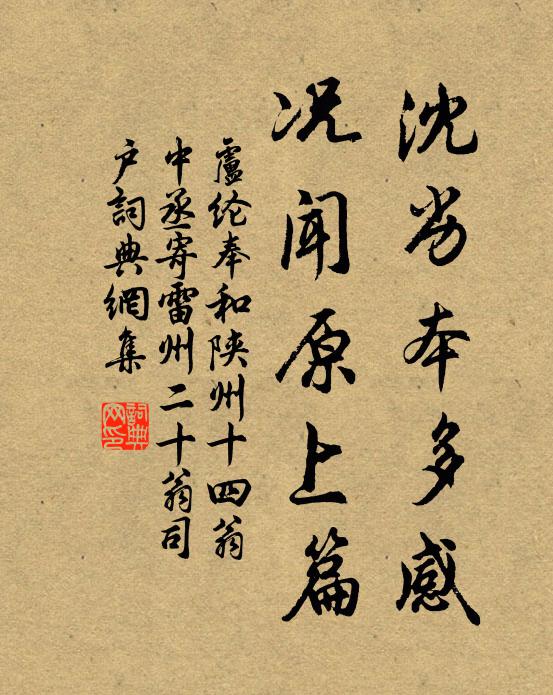 沈劣本多感
况闻原上篇
盧纶奉和陕州十四翁
中丞寄雷州二十翁司
户詞典網集
詞典网印